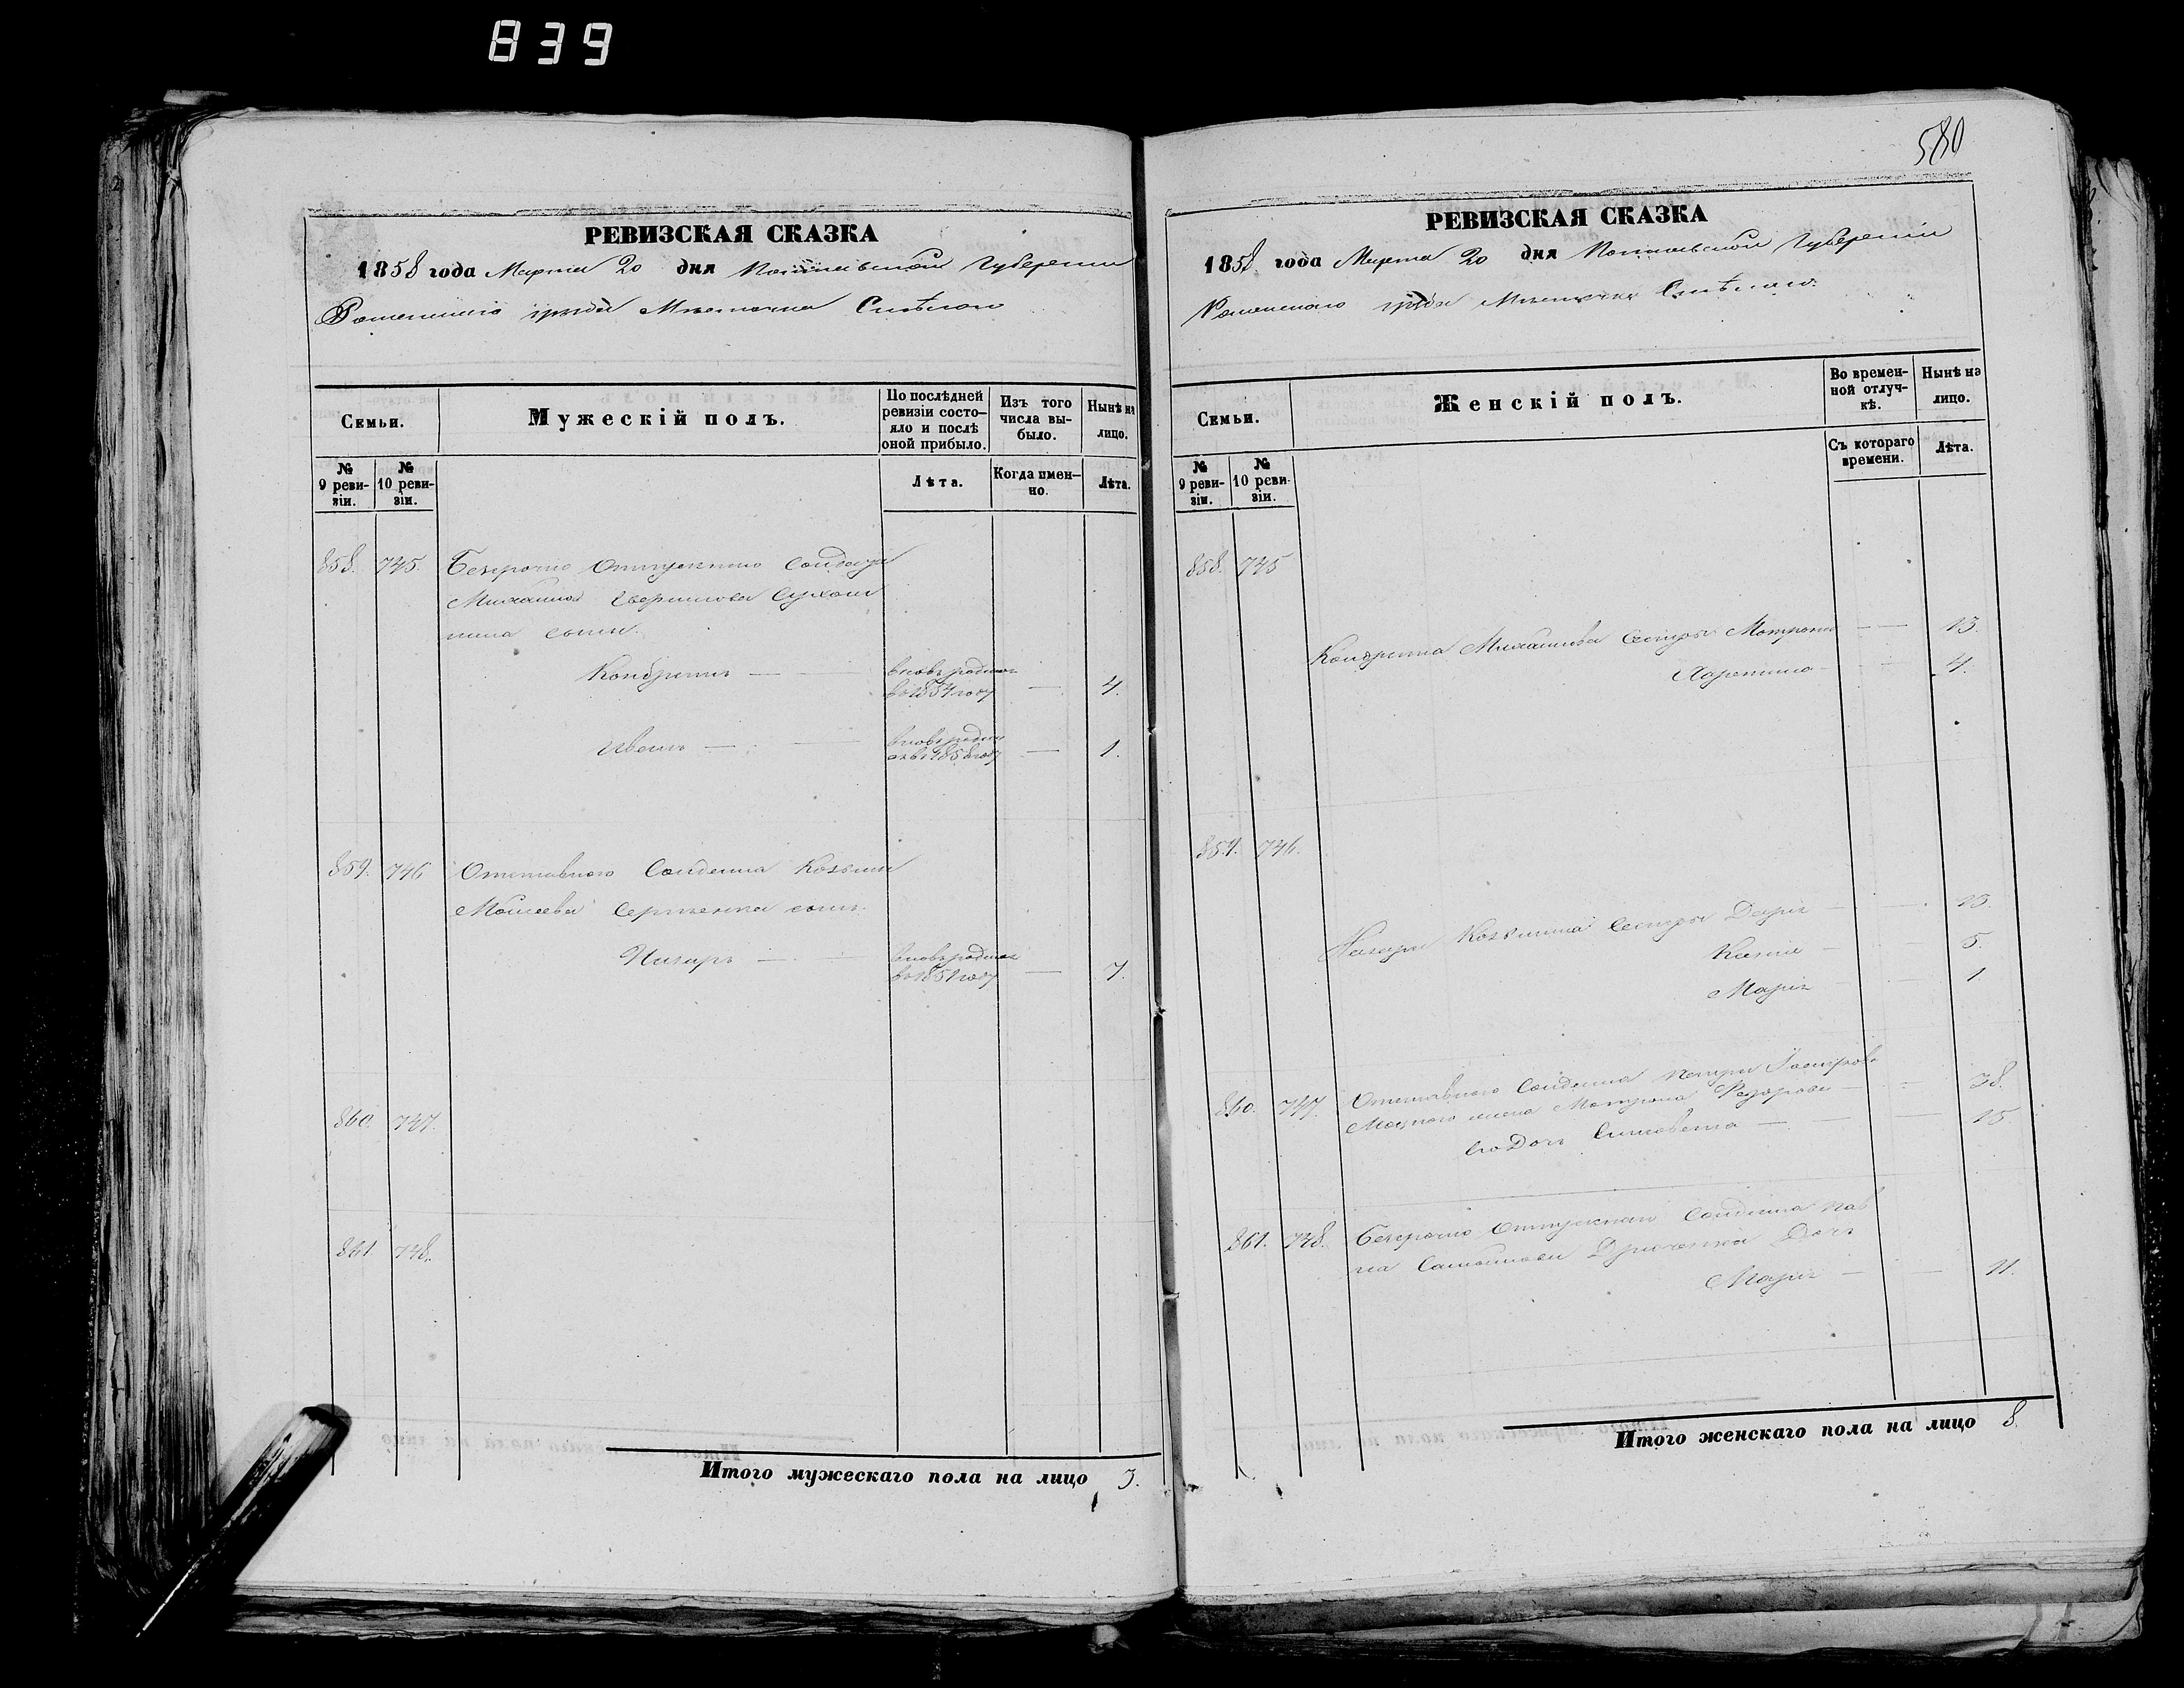 839
РЕВИЗСКАЯ СКАЗКА
1858 года Марта 20 дня Полтавской Губернии
Роменского уезда Местечка Смѣлого
Семьи.
Мужескій полъ.
По послѣдней ревизіи состояло и послѣ оной прибыло.
Изъ того числа выбыло.
Нынѣ на лицо.
№ 9 ревизіи.
№ 10 ревизіи.
Лѣта.
Когда именно.
Лѣта.
858. 745. Безсрочно Отпускного Солдата
Михаила сына.
Кондратъ — вновь родился в 1854 году — 4.
Иванъ — вновь родился въ 1858 году — 1.
859. 746 Отставного Солдата Козьмы
Моисеева Сергіенка сынъ
Назаръ — вновь родился в 1851 году — 7.
860. 747.
861 748.
Итого мужескаго пола на лицо 3.
580
РЕВИЗСКАЯ СКАЗКА
1858 года Марта 20 дня Полтавской Губерніи
Роменского уезда Местечка Смѣлого.
Семьи.
Женскій полъ.
Во временной отлучкѣ.
Нынѣ на лицо.
№ 9 ревизіи.
№ 10 ревизіи.
Съ котораго времени.
Лѣта.
858. 745
Кондрата Михайлова Сестры Матрона — 13.
4.
859. 746.
Назара Козьмина Сестры Дарья — 13.
5.
Марья 1
860. 747. Отставного Солдата Петра
жена Матрона Федорова — 38.
его Дочь Елисавета — 15
861. 748. Безсрочно Отпускного Солдата Пав
ла Дочь
Марья — 11.
Итого женскаго пола на лицо 8.